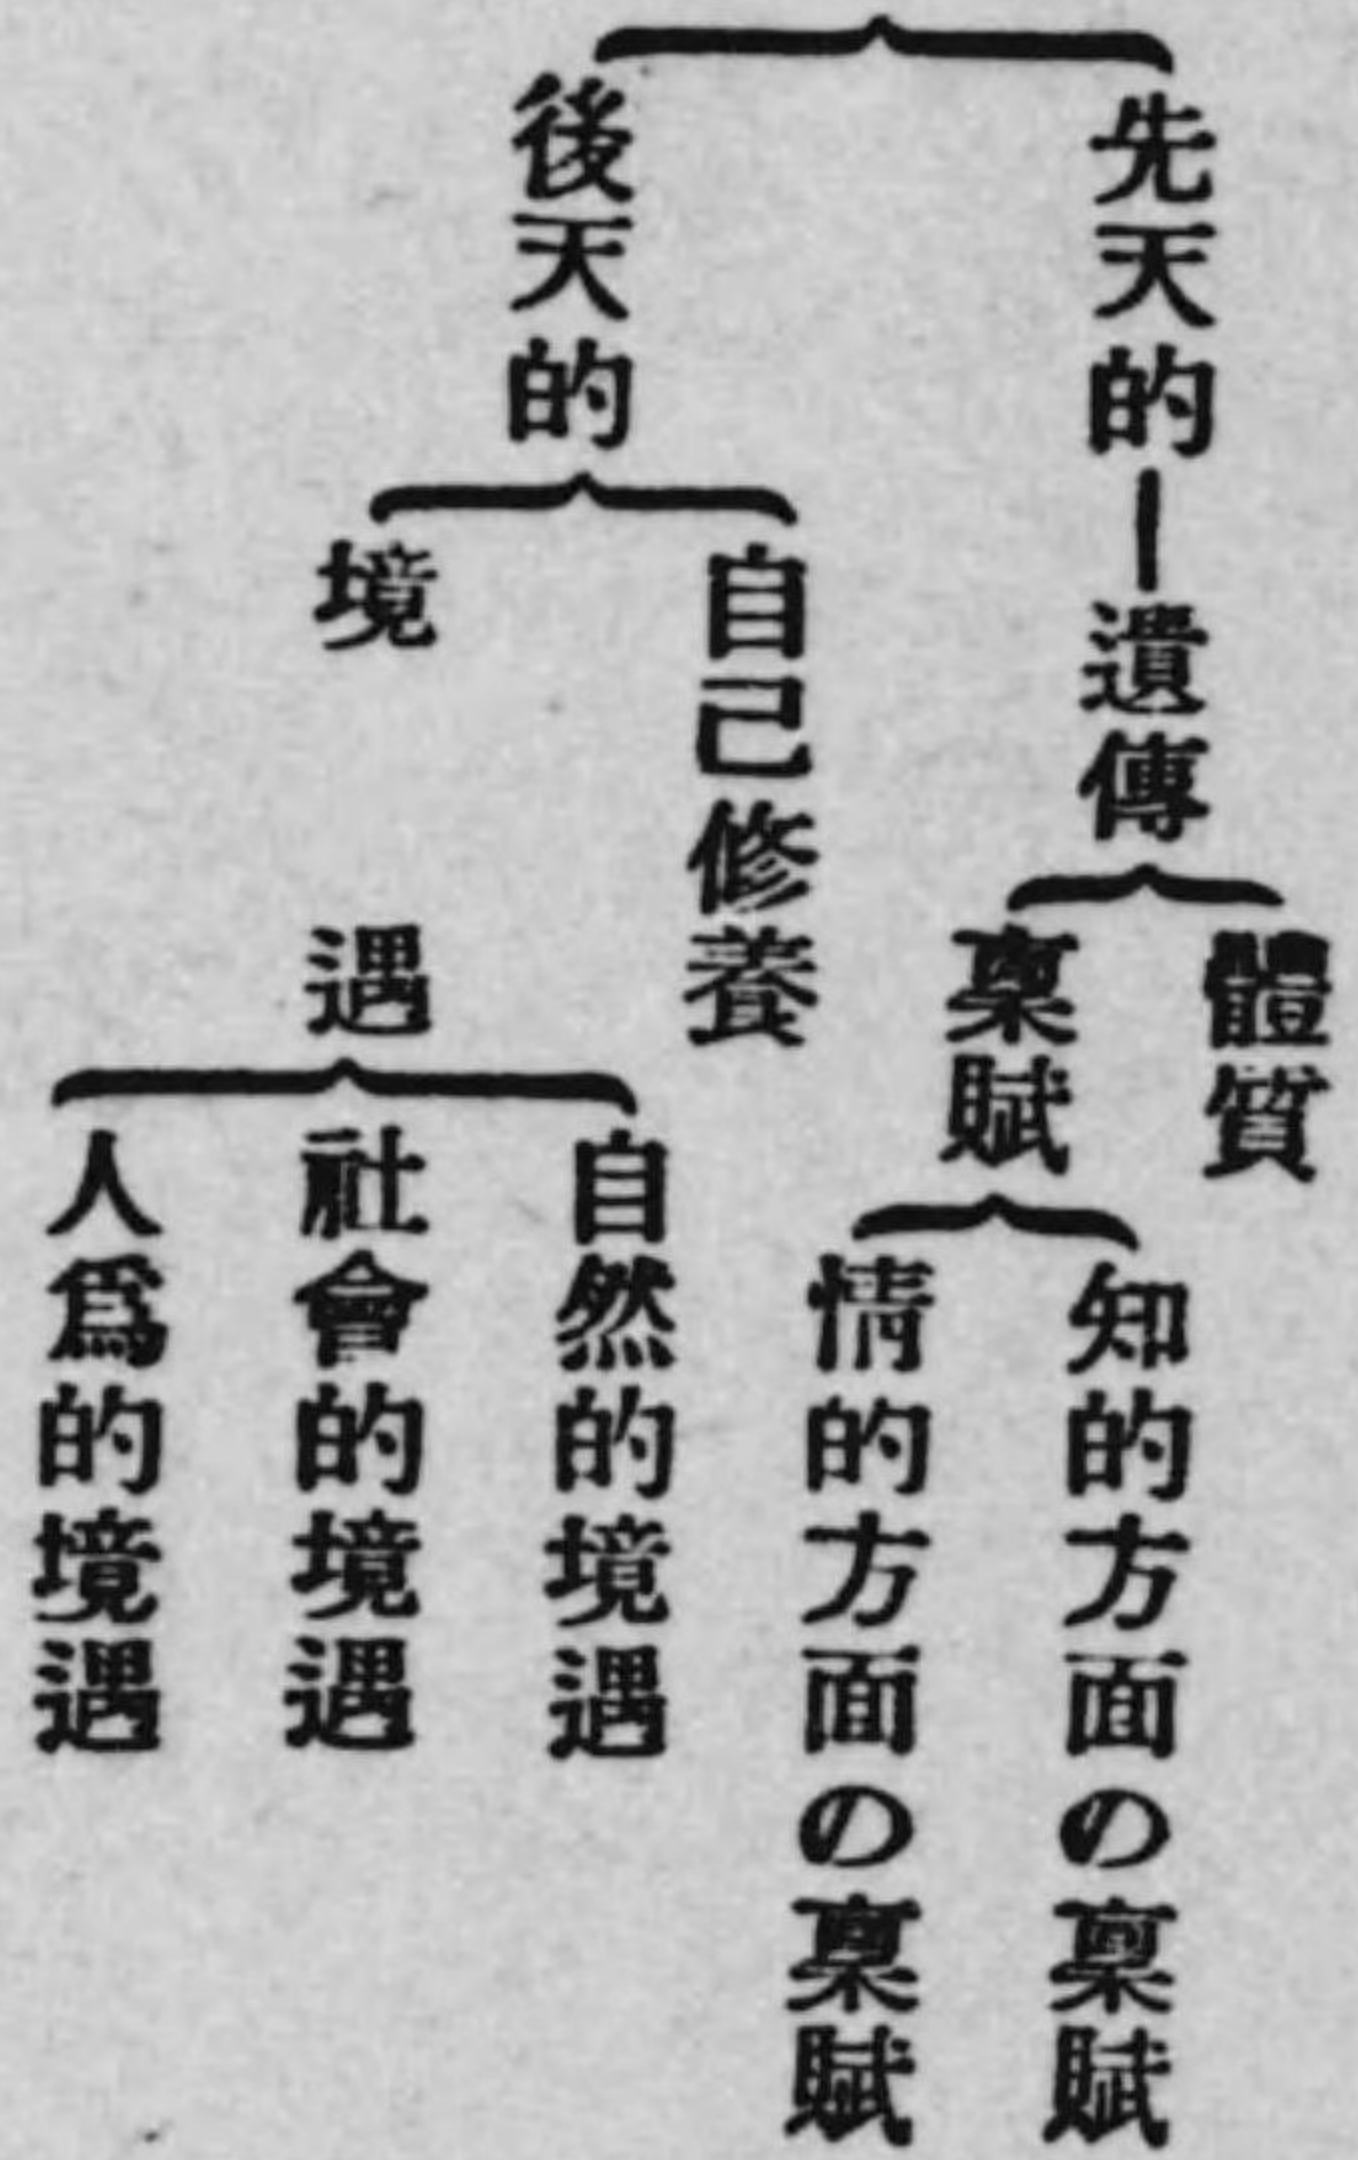 先天的―遺傳
體質
稟賦
知的方面の稟賦
情的方面の稟賦
後天的
自己修養
境遇
自然的境遇
社會的境遇
人爲的境遇